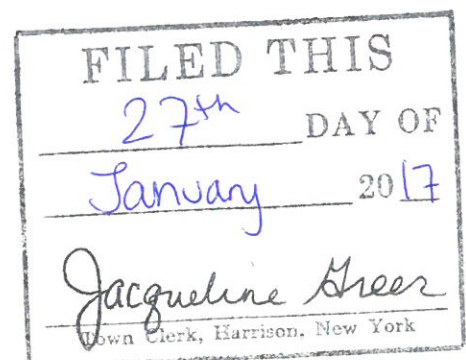 FILED THIS
27th DAY OF
January 2017
Jacqueline Greer
Town Clerk, Harrison. New York